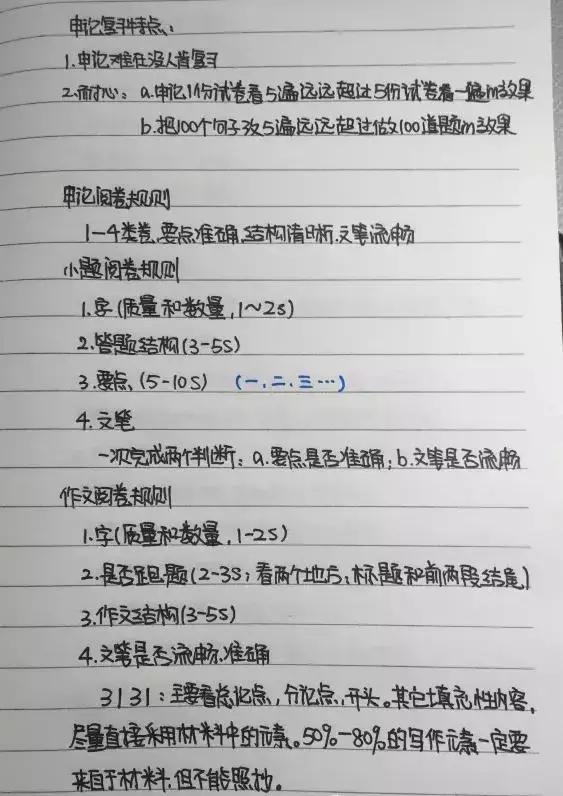 申论复习特点:
1.申论难在没人肯复习
2.耐心: a.申论1份试卷看5遍远远超过5份试卷看一遍m效果
b.把100个句子改5遍远远超过做100道题m效果
申论阅卷规则
1-4类卷,要点准确,结构清晰,文笔流畅
小题阅卷规则
1.字(质量和数量,1~2s)
2.答题结构(3-5S)
3.要点,(5-10S) (一、二、三…)
4.文笔
一次完成两个判断:a.要点是否准确;b.文笔是否流畅
作文阅卷规则
1.字(质量和数量,1-2S)
2.是否跑题(2-3S;看两个地方;标题和前两段结尾)
3.作文结构(3-5S)
4.文笔是否流畅、准确
3131:主要看总论点,分论点,开头。其它填充性内容,
尽量直接采用材料中的元素。50%-80%的写作元素一定要
来自于材料,但不能照抄。